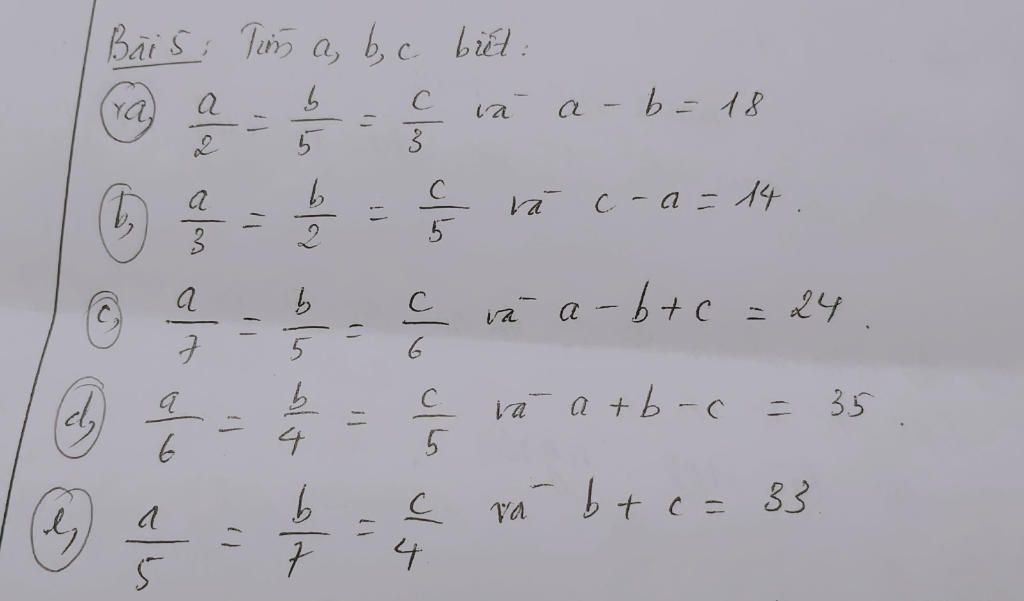 Bài 5: Tìm a, b, c biết:
a, a/2 = b/5 = c/3 và a - b = 18
b, a/3 = b/2 = c/5 và c - a = 14.
c, a/7 = b/5 = c/6 và a - b + c = 24.
d, a/6 = b/4 = c/5 và a + b - c = 35.
e, a/5 = b/7 = c/4 và b + c = 33